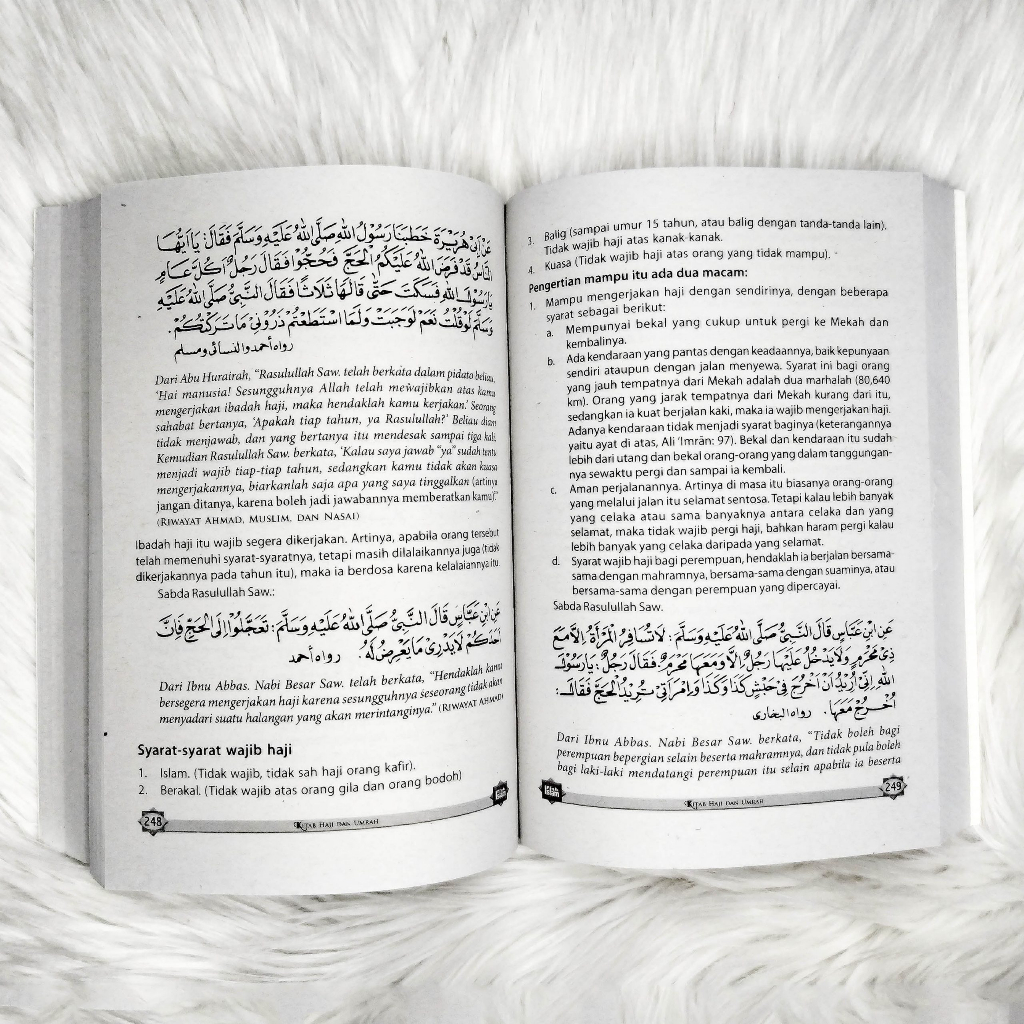 عَنْ اَبِىْ هُرَيْرَةَ خَطَبَنَا رَسُوْلُ اللهِ صَلَّى اللهُ عَلَيْهِ وَسَلَّمَ فَقَالَ: يَااَيُّهَا
النَّاسُ قَدْ فَرَضَ اللهُ عَلَيْكُمُ الْحَجَّ فَحُجُّوْا فَقَالَ رَجُلٌ اَكُلَّ عَامٍ
يَارَسُوْلَ اللهِ فَسَكَتَ حَتَّى قَالَهَا ثَلَاثًا فَقَالَ النَّبِيُّ صَلَّى اللهُ عَلَيْهِ
وَسَلَّمَ لَوْقُلْتُ نَعَمْ لَوَجَبَتْ وَلَمَا اسْتَطَعْتُمْ ذَرُوْنِيْ مَاتَرَكْتُكُمْ.
رواه أحمد والنسائى ومسلم
Dari Abu Hurairah, “Rasulullah Saw. telah berkata dalam pidato beliau,
‘Hai manusia! Sesungguhnya Allah telah mewajibkan atas kamu
mengerjakan ibadah haji, maka hendaklah kamu kerjakan.’ Seorang
sahabat bertanya, ‘Apakah tiap tahun, ya Rasulullah?’ Beliau diam
tidak menjawab, dan yang bertanya itu mendesak sampai tiga kali.
Kemudian Rasulullah Saw. berkata, ‘Kalau saya jawab “ya” sudah tentu
menjadi wajib tiap-tiap tahun, sedangkan kamu tidak akan kuasa
mengerjakannya, biarkanlah saja apa yang saya tinggalkan (artinya
jangan ditanya, karena boleh jadi jawabannya memberatkan kamu)’.”
(RIWAYAT AHMAD, MUSLIM, DAN NASAI)
Ibadah haji itu wajib segera dikerjakan. Artinya, apabila orang tersebut
telah memenuhi syarat-syaratnya, tetapi masih dilalaikannya juga (tidak
dikerjakannya pada tahun itu), maka ia berdosa karena kelalaiannya itu.
Sabda Rasulullah Saw.:
عَنِ ابْنِ عَبَّاسٍ قَالَ النَّبِيُّ صَلَّى اللهُ عَلَيْهِ وَسَلَّمَ: تَعَجَّلُوْا اِلَى الْحَجِّ فَاِنَّ
اَحَدَكُمْ لَايَدْرِىْ مَايَعْرِضُ لَهُ. رواه أحمد
Dari Ibnu Abbas. Nabi Besar Saw. telah berkata, “Hendaklah kamu
bersegera mengerjakan haji karena sesungguhnya seseorang tidak akan
menyadari suatu halangan yang akan merintanginya.” (RIWAYAT AHMAD)
Syarat-syarat wajib haji
1. Islam. (Tidak wajib, tidak sah haji orang kafir).
2. Berakal. (Tidak wajib atas orang gila dan orang bodoh)
248
KITAB HAJI DAN UMRAH
3. Balig (sampai umur 15 tahun, atau balig dengan tanda-tanda lain).
Tidak wajib haji atas kanak-kanak.
4. Kuasa (Tidak wajib haji atas orang yang tidak mampu).
Pengertian mampu itu ada dua macam:
1. Mampu mengerjakan haji dengan sendirinya, dengan beberapa
syarat sebagai berikut:
a. Mempunyai bekal yang cukup untuk pergi ke Mekah dan
kembalinya.
b. Ada kendaraan yang pantas dengan keadaannya, baik kepunyaan
sendiri ataupun dengan jalan menyewa. Syarat ini bagi orang
yang jauh tempatnya dari Mekah adalah dua marhalah (80,640
km). Orang yang jarak tempatnya dari Mekah kurang dari itu,
sedangkan ia kuat berjalan kaki, maka ia wajib mengerjakan haji.
Adanya kendaraan tidak menjadi syarat baginya (keterangannya
yaitu ayat di atas, Ali ‘Imrân: 97). Bekal dan kendaraan itu sudah
lebih dari utang dan bekal orang-orang yang dalam tanggungan-
nya sewaktu pergi dan sampai ia kembali.
c. Aman perjalanannya. Artinya di masa itu biasanya orang-orang
yang melalui jalan itu selamat sentosa. Tetapi kalau lebih banyak
yang celaka atau sama banyaknya antara celaka dan yang
selamat, maka tidak wajib pergi haji, bahkan haram pergi kalau
lebih banyak yang celaka daripada yang selamat.
d. Syarat wajib haji bagi perempuan, hendaklah ia berjalan bersama-
sama dengan mahramnya, bersama-sama dengan suaminya, atau
bersama-sama dengan perempuan yang dipercayai.
Sabda Rasulullah Saw.
عَنِ ابْنِ عَبَّاسٍ قَالَ النَّبِيُّ صَلَّى اللهُ عَلَيْهِ وَسَلَّمَ: لَاتُسَافِرُ الْمَرْأَةُ اِلَّا مَعَ
ذِىْ مَحْرَمٍ وَلَايَدْخُلُ عَلَيْهَا رَجُلٌ اِلَّا وَمَعَهَا مَحْرَمٌ. فَقَالَ رَجُلٌ: يَارَسُوْلَ
اللهِ اِنِّى اُرِيْدُ اَنْ اَخْرُجَ فِى جَيْشِ كَذَا وَكَذَا وَامْرَأَتِىْ تُرِيْدُ الْحَجَّ فَقَالَ:
اُخْرُجْ مَعَهَا. رواه البخارى
Dari Ibnu Abbas. Nabi Besar Saw. berkata, “Tidak boleh bagi
perempuan bepergian selain beserta mahramnya, dan tidak pula boleh
bagi laki-laki mendatangi perempuan itu selain apabila ia beserta
KITAB HAJI DAN UMRAH
249